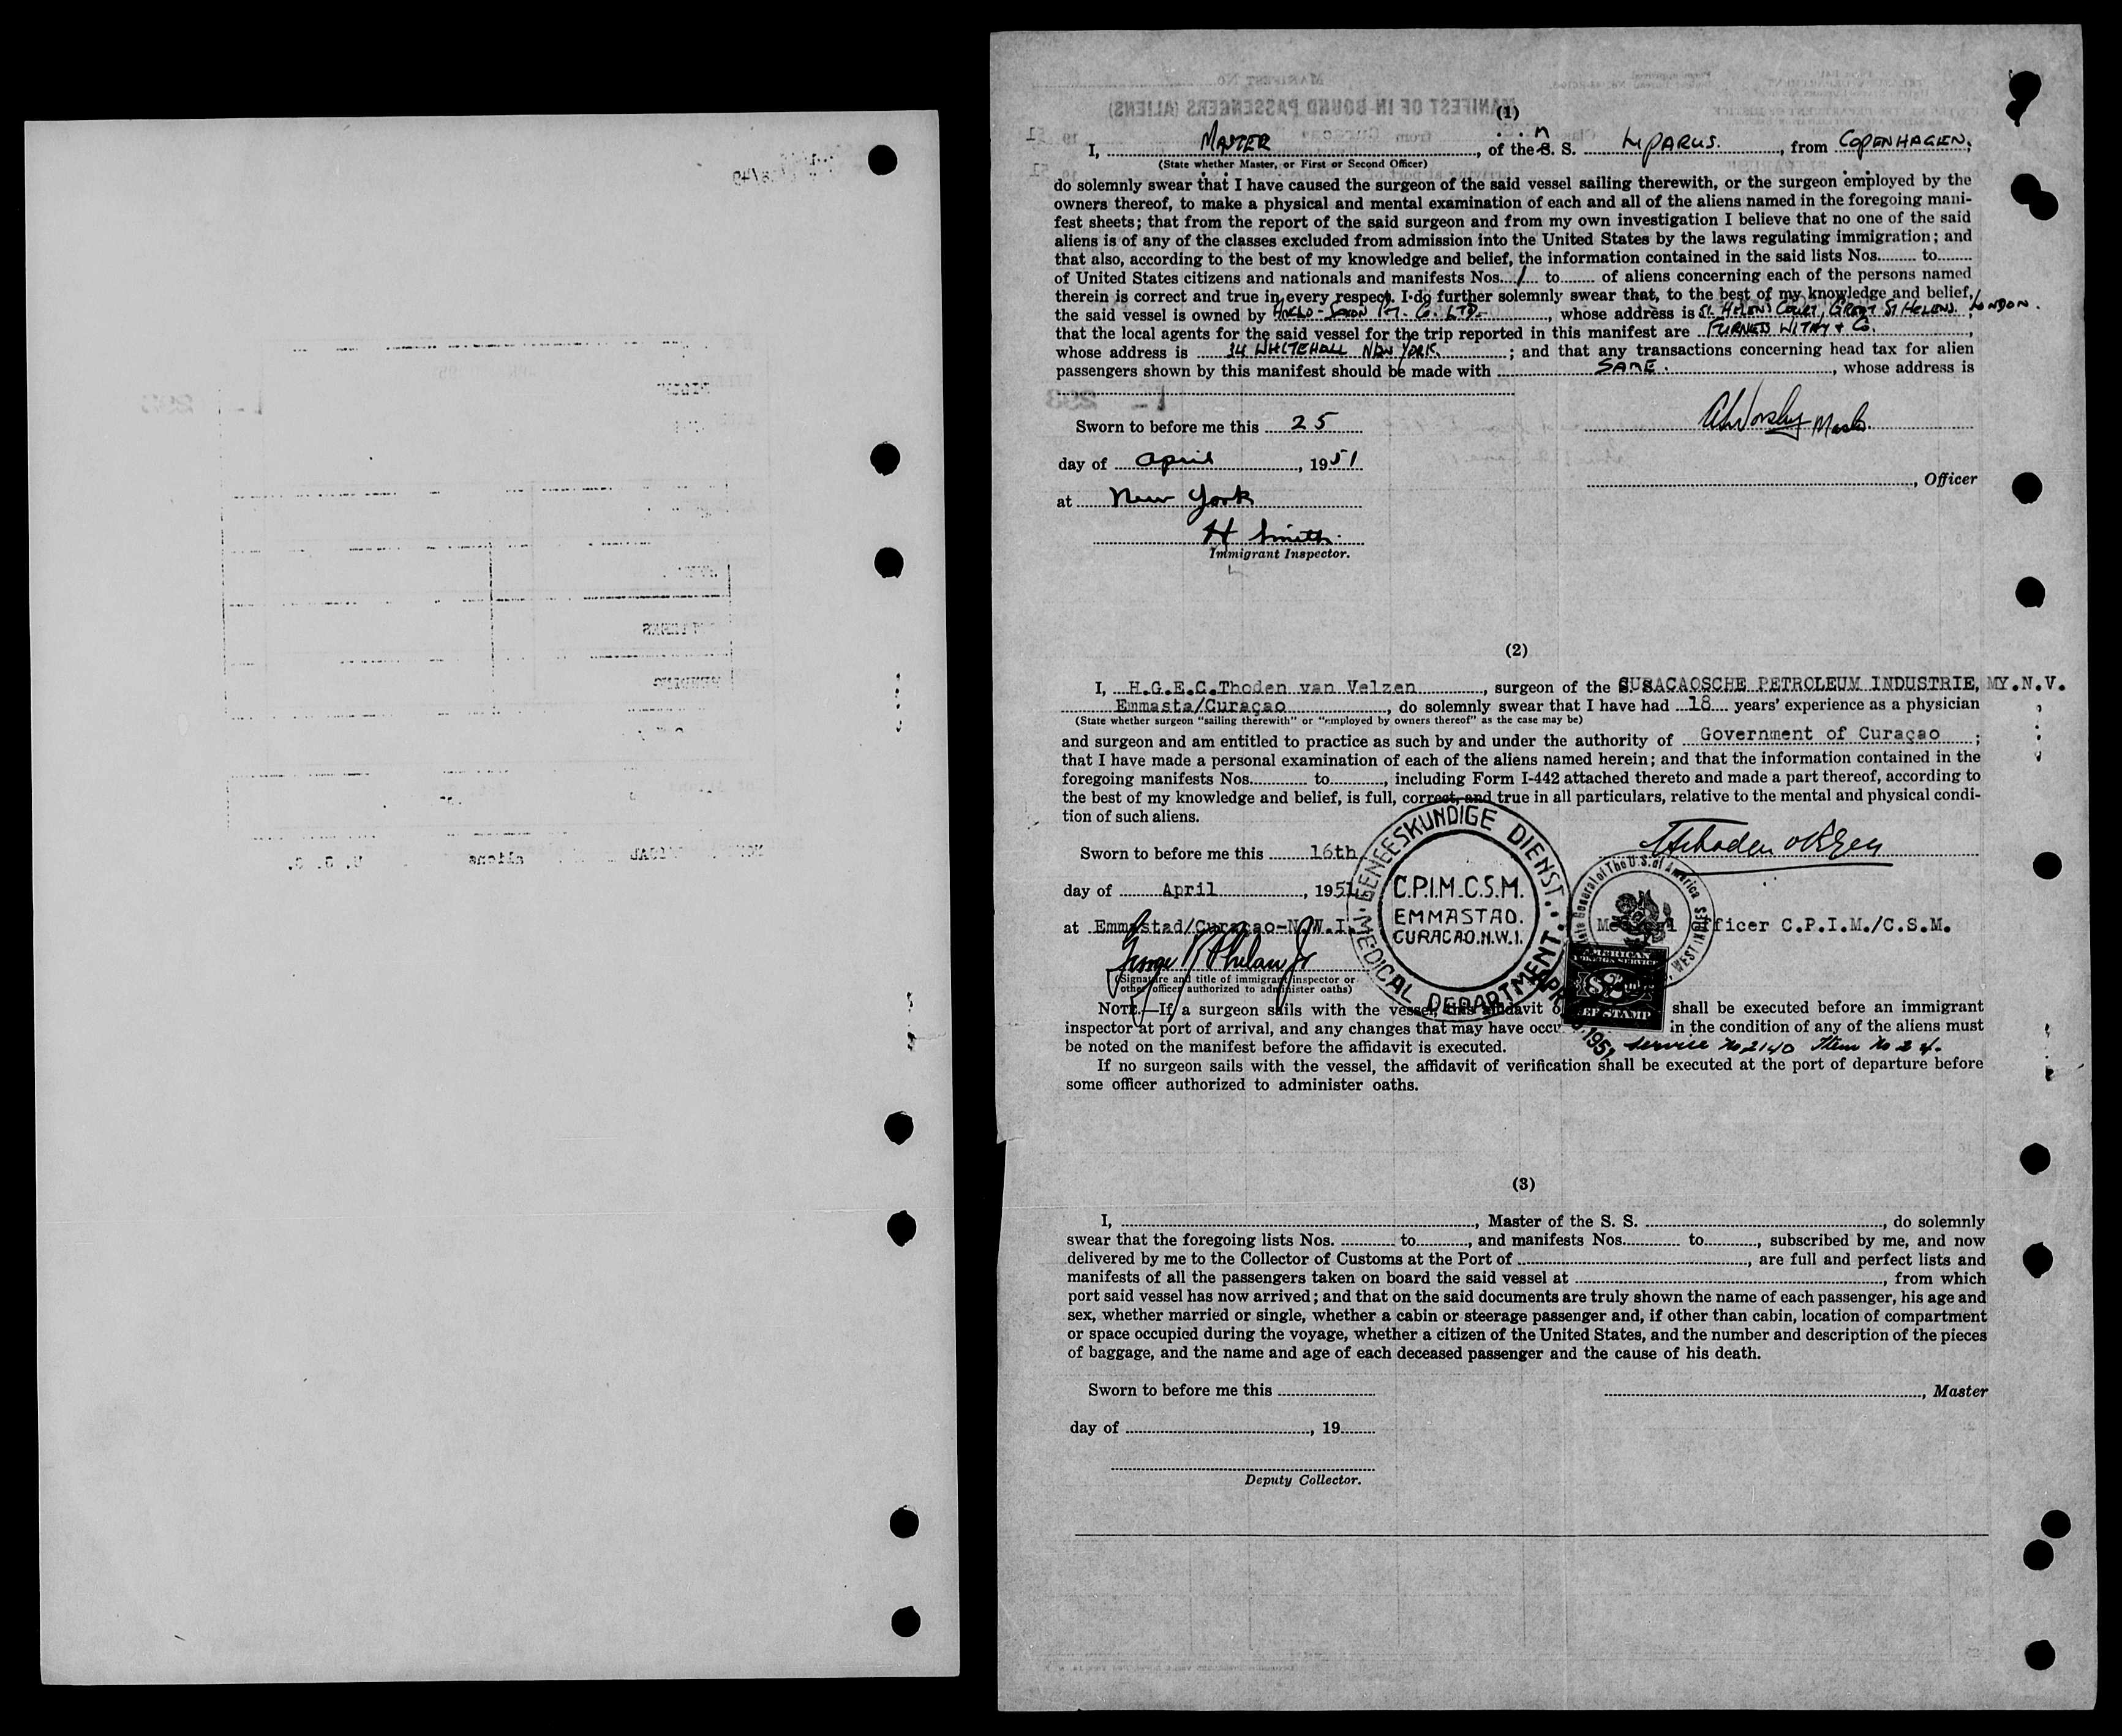 (1)
I, MASTER, of the M. S. LYPARUS., from COPENHAGEN,
(State whether Master, or First or Second Officer)
do solemnly swear that I have caused the surgeon of the said vessel sailing therewith, or the surgeon employed by the
owners thereof, to make a physical and mental examination of each and all of the aliens named in the foregoing mani-
fest sheets; that from the report of the said surgeon and from my own investigation I believe that no one of the said
aliens is of any of the classes excluded from admission into the United States by the laws regulating immigration; and
that also, according to the best of my knowledge and belief, the information contained in the said lists Nos. to
of United States citizens and nationals and manifests Nos. 1 to of aliens concerning each of the persons named
therein is correct and true in every respect. I do further solemnly swear that, to the best of my knowledge and belief,
the said vessel is owned by ANGLO-SAXON PET. Co. LTD., whose address is St. HELENS COURT, GREAT St HELENS, LONDON.
that the local agents for the said vessel for the trip reported in this manifest are FURNESS WITHY & Co.,
whose address is 34 WHITEHALL NEW YORK.; and that any transactions concerning head tax for alien
passengers shown by this manifest should be made with SAME., whose address is
Sworn to before me this 25
Master
day of April, 1951
, Officer
at New York
H Smith.
Immigrant Inspector.
(2)
I, H.G.E.C.Thoden van Velzen, surgeon of the CURACAOSCHE PETROLEUM INDUSTRIE, MY.N.V.
Emmasta/Curaçao, do solemnly swear that I have had 18 years' experience as a physician
(State whether surgeon "sailing therewith" or "employed by owners thereof" as the case may be)
and surgeon and am entitled to practice as such by and under the authority of Government of Curaçao;
that I have made a personal examination of each of the aliens named herein; and that the information contained in the
foregoing manifests Nos. to, including Form I-442 attached thereto and made a part thereof, according to
the best of my knowledge and belief, is full, correct, and true in all particulars, relative to the mental and physical condi-
tion of such aliens.
Sworn to before me this 16th
day of April, 1951
at Emmastad/Curaçao-N.W.I.
Medical Officer C.P.I.M./C.S.M.
GENEESKUNDIGE DIENST.
C.P.I.M. C.S.M.
EMMASTAD.
CURACAO. N.W.I.
MEDICAL DEPARTMENT.
George R Phelan Jr
(Signature and title of immigrant inspector or
other officer authorized to administer oaths)
AMERICAN
FOREIGN SERVICE
$2
FEE STAMP
NOTE.—If a surgeon sails with the vessel, this affidavit shall be executed before an immigrant
inspector at port of arrival, and any changes that may have occu in the condition of any of the aliens must
be noted on the manifest before the affidavit is executed. Service No 2140 Item No 24.
If no surgeon sails with the vessel, the affidavit of verification shall be executed at the port of departure before
some officer authorized to administer oaths.
(3)
I, , Master of the S. S. , do solemnly
swear that the foregoing lists Nos. to, and manifests Nos. to, subscribed by me, and now
delivered by me to the Collector of Customs at the Port of , are full and perfect lists and
manifests of all the passengers taken on board the said vessel at , from which
port said vessel has now arrived; and that on the said documents are truly shown the name of each passenger, his age and
sex, whether married or single, whether a cabin or steerage passenger and, if other than cabin, location of compartment
or space occupied during the voyage, whether a citizen of the United States, and the number and description of the pieces
of baggage, and the name and age of each deceased passenger and the cause of his death.
Sworn to before me this
, Master
day of , 19
Deputy Collector.